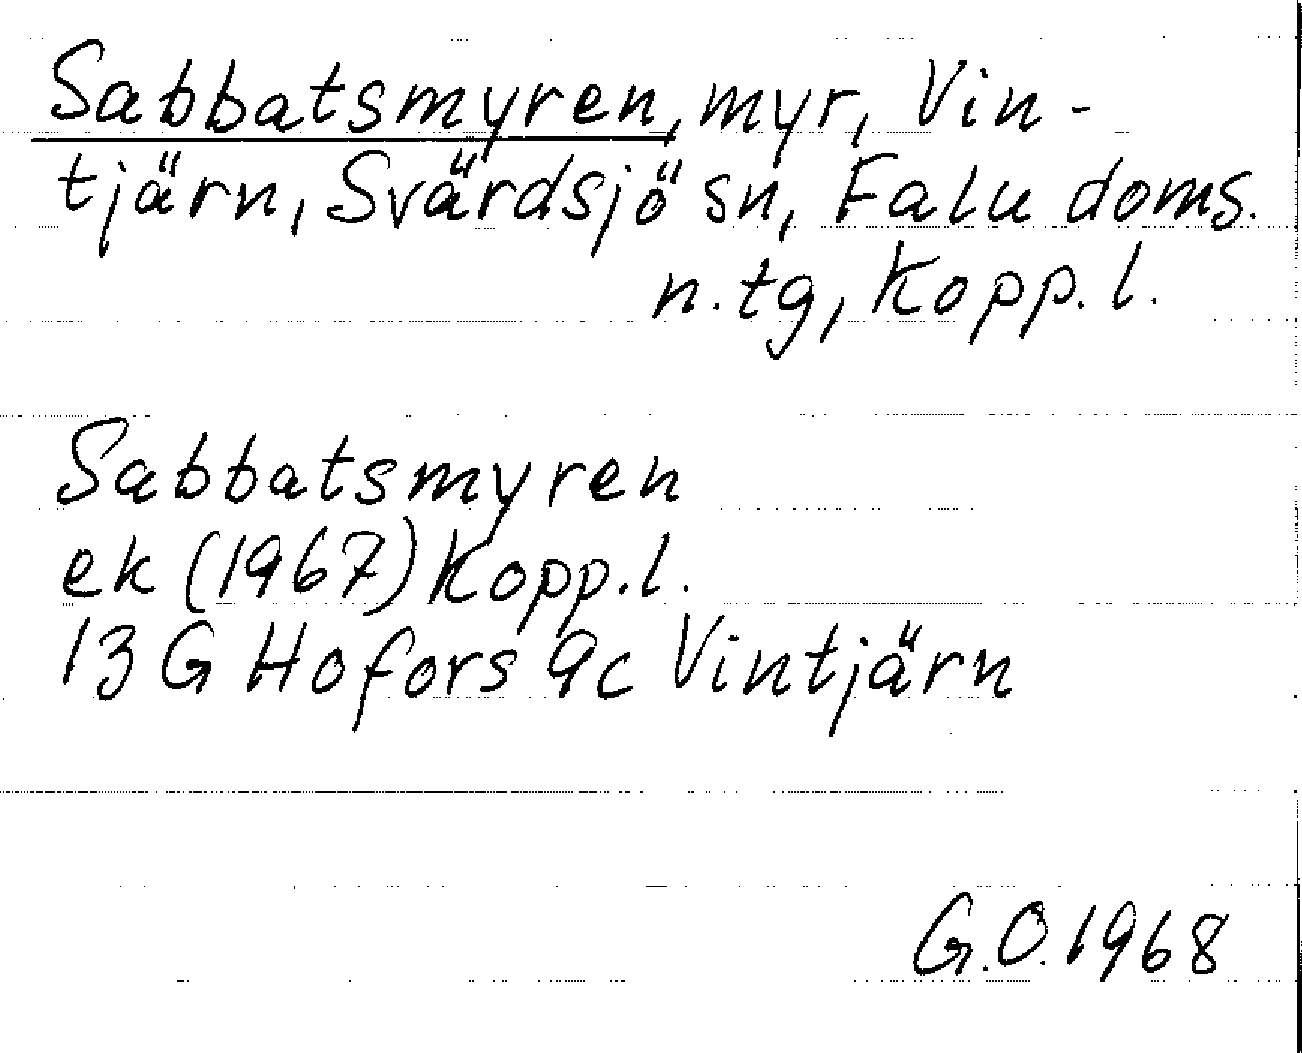 Sabbatsmyren, myr, Vin-
tjärn, Svärdsjö sn, Falu doms.
n.tg, Kopp.l.
Sabbatsmyren
ek (1967) Kopp.l.
13 G Hofors 9c Vintjärn
G.O. 1968